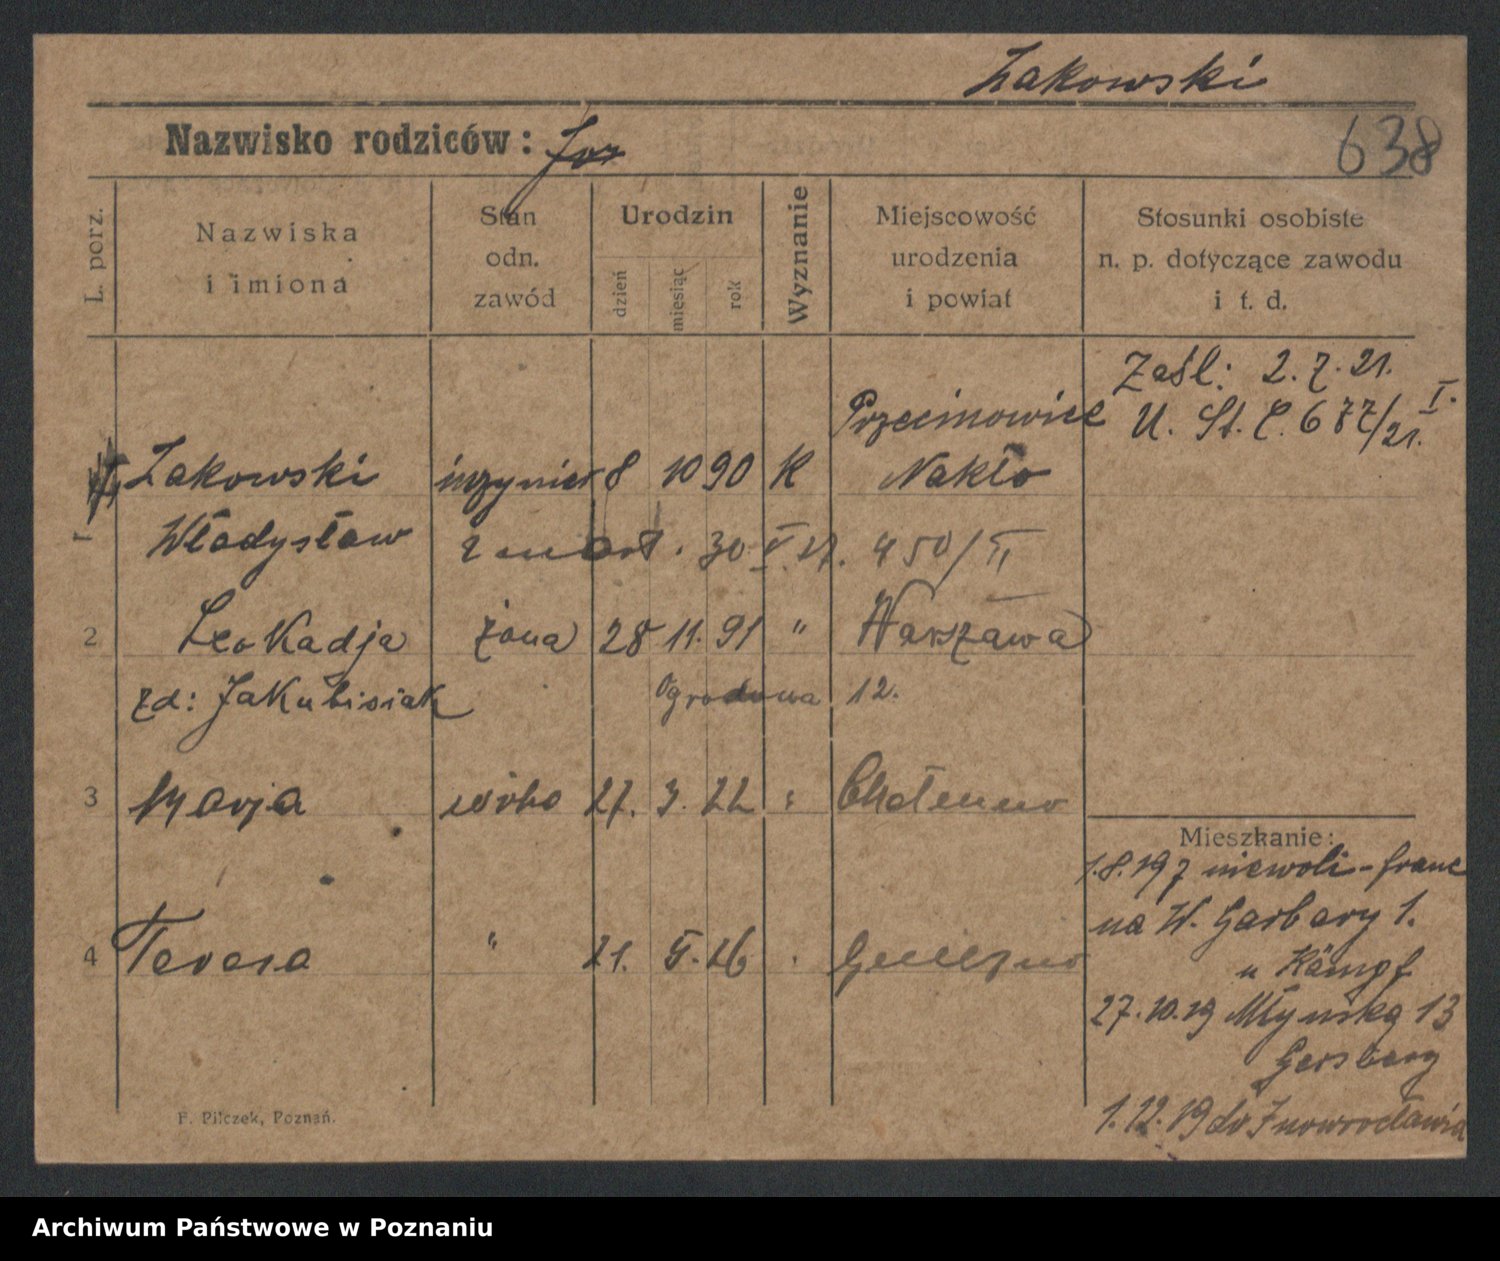 Żakowski
Nazwisko rodziców:
638
L. porz.
Nazwiska
i imiona
Stan
odn.
zawód
Urodzin
dzień
miesiąc
rok
Wyznanie
Miejscowość
urodzenia
i powiat
Stosunki osobiste
n. p. dotyczące zawodu
i t. d.
Zaśl: 2. 7. 21.
U. St. C. 677/21. I.
Żakowski inżynier 8 10 90 K Nakło
Władysław zmarł. 30 V. 27. 450/II
2 Leokadja żona 28 11. 91 " Warszawa
zd: Jakubisiak Ogrodowa 12.
3 Marja córka 27. 3. 22
Mieszkanie:
1.8.19 z niewoli-franc
na W. Garbary 1.
u Kämpf
4 Teresa " 21. 5. 26 Gniezno
27.10.19 Młyńska 13
1.12.19 do Inowrocławia
F. Pilczek, Poznań.
Archiwum Państwowe w Poznaniu